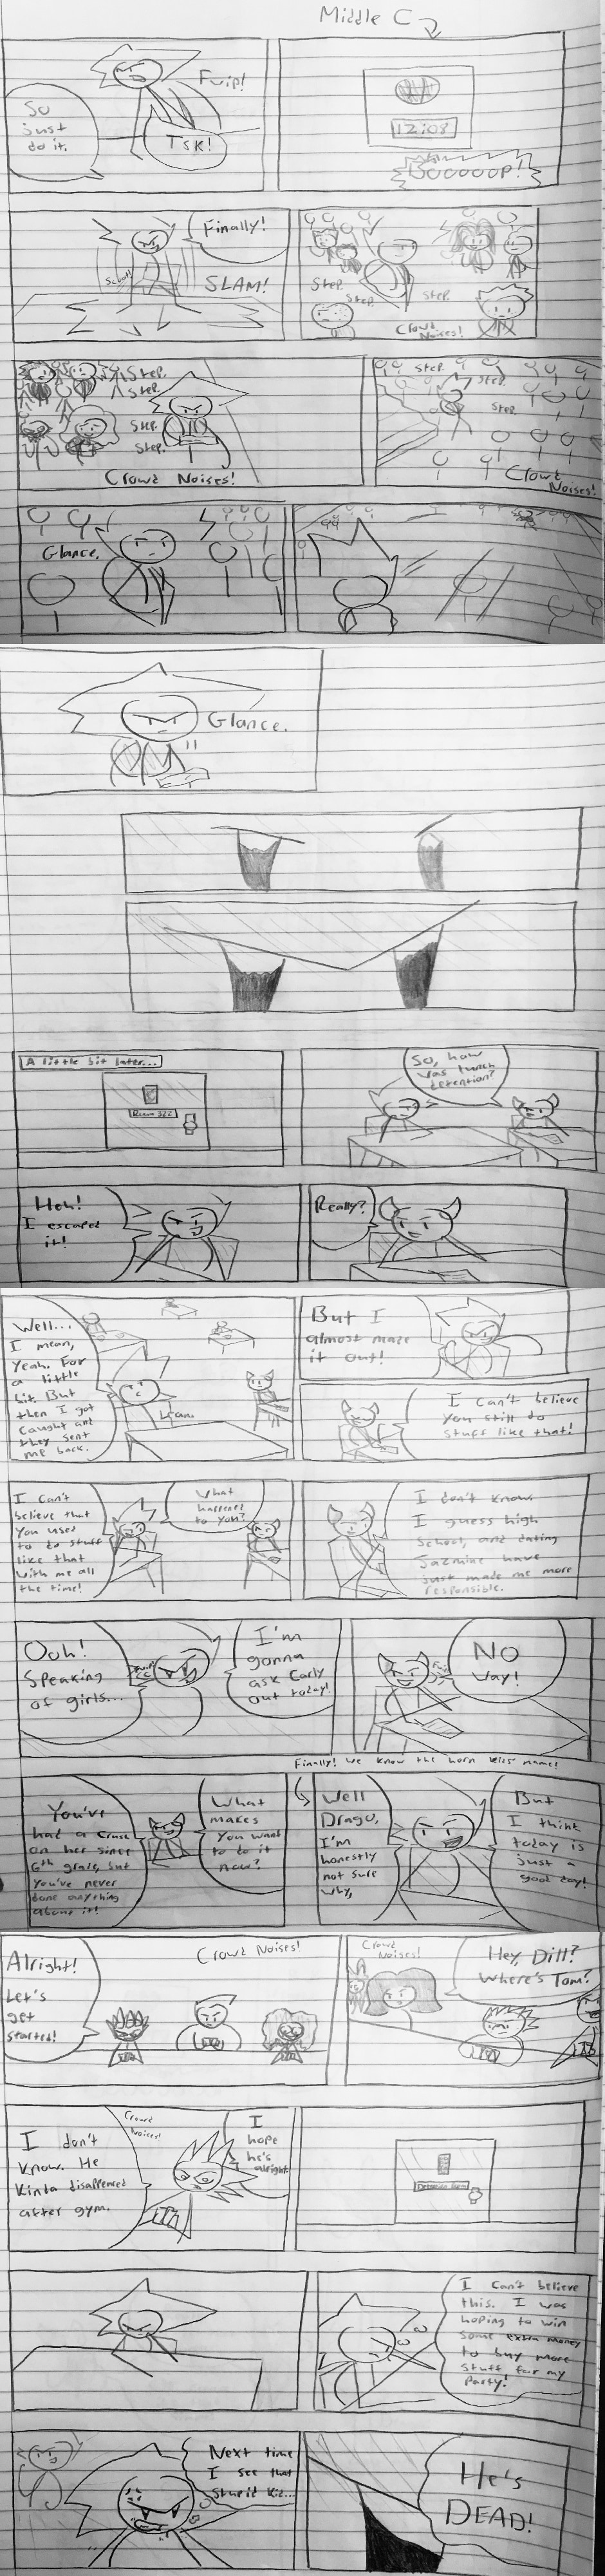 Middle C
So
just
do it.
Fwip!
TSK!
12:08
BOOOOOP!
Finally!
SLAM!
Step.
Step.
Step.
Crowd
Noises!
Step.
Step.
Step.
Step.
Crowd Noises!
Step.
Step.
Step.
Crowd
Noises!
Glance.
Glance.
A little bit later...
Room 322
So, how
was lunch
detention?
Heh!
I escaped
it!
Really?
Well...
I mean,
yeah. For
a little
bit. But
then I got
caught and
they sent
me back.
Lean.
But I
almost made
it out!
I can't believe
you still do
stuff like that!
I can't
believe that
you used
to do stuff
like that
with me all
the time!
What
happened
to you?
I don't know.
I guess high
school, and dating
Jazmine have
just made me more
responsible.
Ooh!
Speaking
of girls...
I'm
gonna
ask Carly
out today!
No
way!
Finally! We know the horn kids' name!
You've
had a crush
on her since
6th grade, but
you've never
done anything
about it!
What
makes
you want
to do it
now?
Well
Drago,
I'm
honestly
not sure
why,
But
I think
today is
just a
good day!
Alright!
Let's
get
started!
Crowd Noises!
Crowd
Noises!
Hey, Dill?
Where's Tom?
I don't
know. He
kinda disappeared
after gym.
Crowd
Noises!
I
hope
he's
alright.
Detention Room
I can't believe
this. I was
hoping to win
some extra money
to buy more
stuff for my
Party!
Next time
I see that
stupid kid...
He's
DEAD!